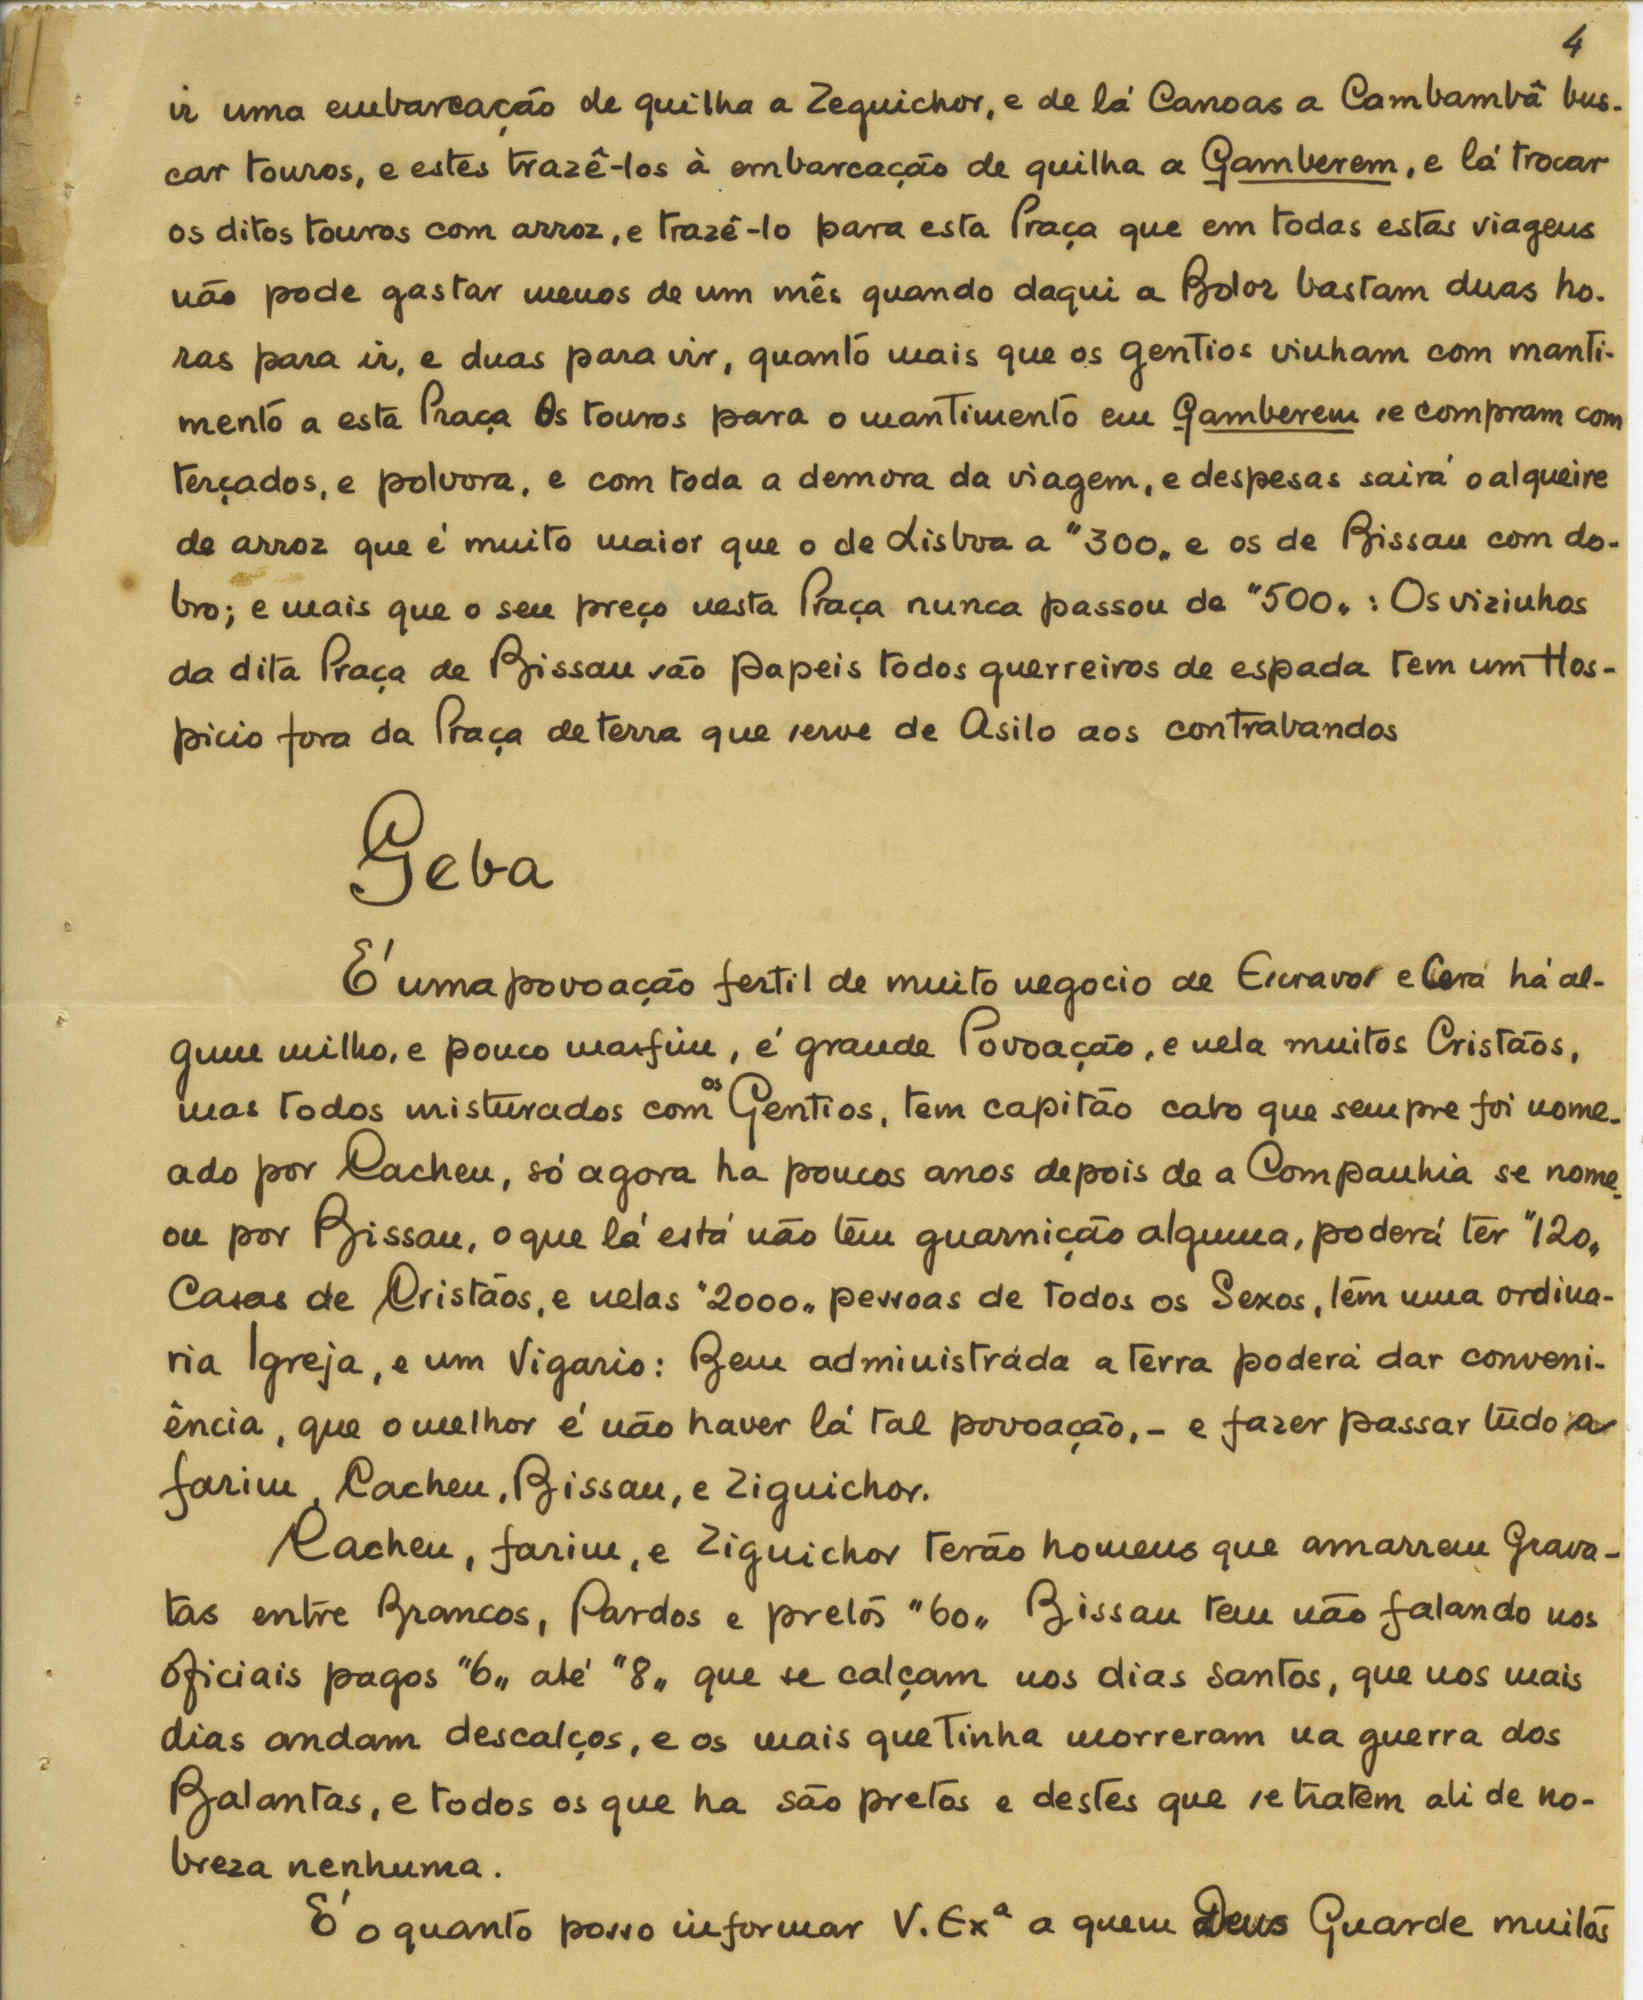 4
ir uma embarcação de quilha a Zeguichor, e de lá Canoas a Cambambã bus-
car touros, e estes trazê-los à embarcação de quilha a Gamberem, e lá trocar
os ditos touros com arroz, e trazê-lo para esta Praça que em todas estas viagens
não pode gastar menos de um mês quando daqui a Bolor bastam duas ho-
ras para ir, e duas para vir, quanto mais que os gentios vinham com manti-
mento a esta Praça Os touros para o mantimento em Gamberem se compram com
terçados, e polvora, e com toda a demora da viagem, e despesas sairá o alqueire
de arroz que é muito maior que o de Lisboa a "300„ e os de Bissau com do-
bro; e mais que o seu preço nesta Praça nunca passou de "500„: Os vizinhos
da dita Praça de Bissau são papeis todos guerreiros de espada tem um Hos-
picio fora da Praça de terra que serve de Asilo aos contrabandos
Geba
É uma povoação fertil de muito negocio de Escravos e Cera há al-
gum milho, e pouco marfim, é grande Povoação, e nela muitos Cristãos,
mas todos misturados com os Gentios, tem capitão cabo que sempre foi nome-
ado por Cacheu, só agora ha poucos anos depois de a Companhia se nome-
ou por Bissau, o que lá está não têm guarnição alguma, poderá ter "120„
Casas de Cristãos, e nelas "2000„ pessoas de todos os Sexos, têm uma ordina-
ria Igreja, e um Vigario: Bem administrada a terra poderá dar conveni-
ência, que o melhor é não haver lá tal povoação, - e fazer passar tudo a
farim, Cacheu, Bissau, e Ziguichor.
Cacheu, farim, e Ziguichor terão homens que amarrem Grava-
tas entre Brancos, Pardos e pretos "60„ Bissau tem não falando nos
oficiais pagos "6„ até "8„ que se calçam nos dias Santos, que nos mais
dias andam descalços, e os mais que Tinha morreram na guerra dos
Balantas, e todos os que ha são pretos e destes que se tratem ali de no-
breza nenhuma.
É o quanto posso informar V. Exª a quem Deus Guarde muitos